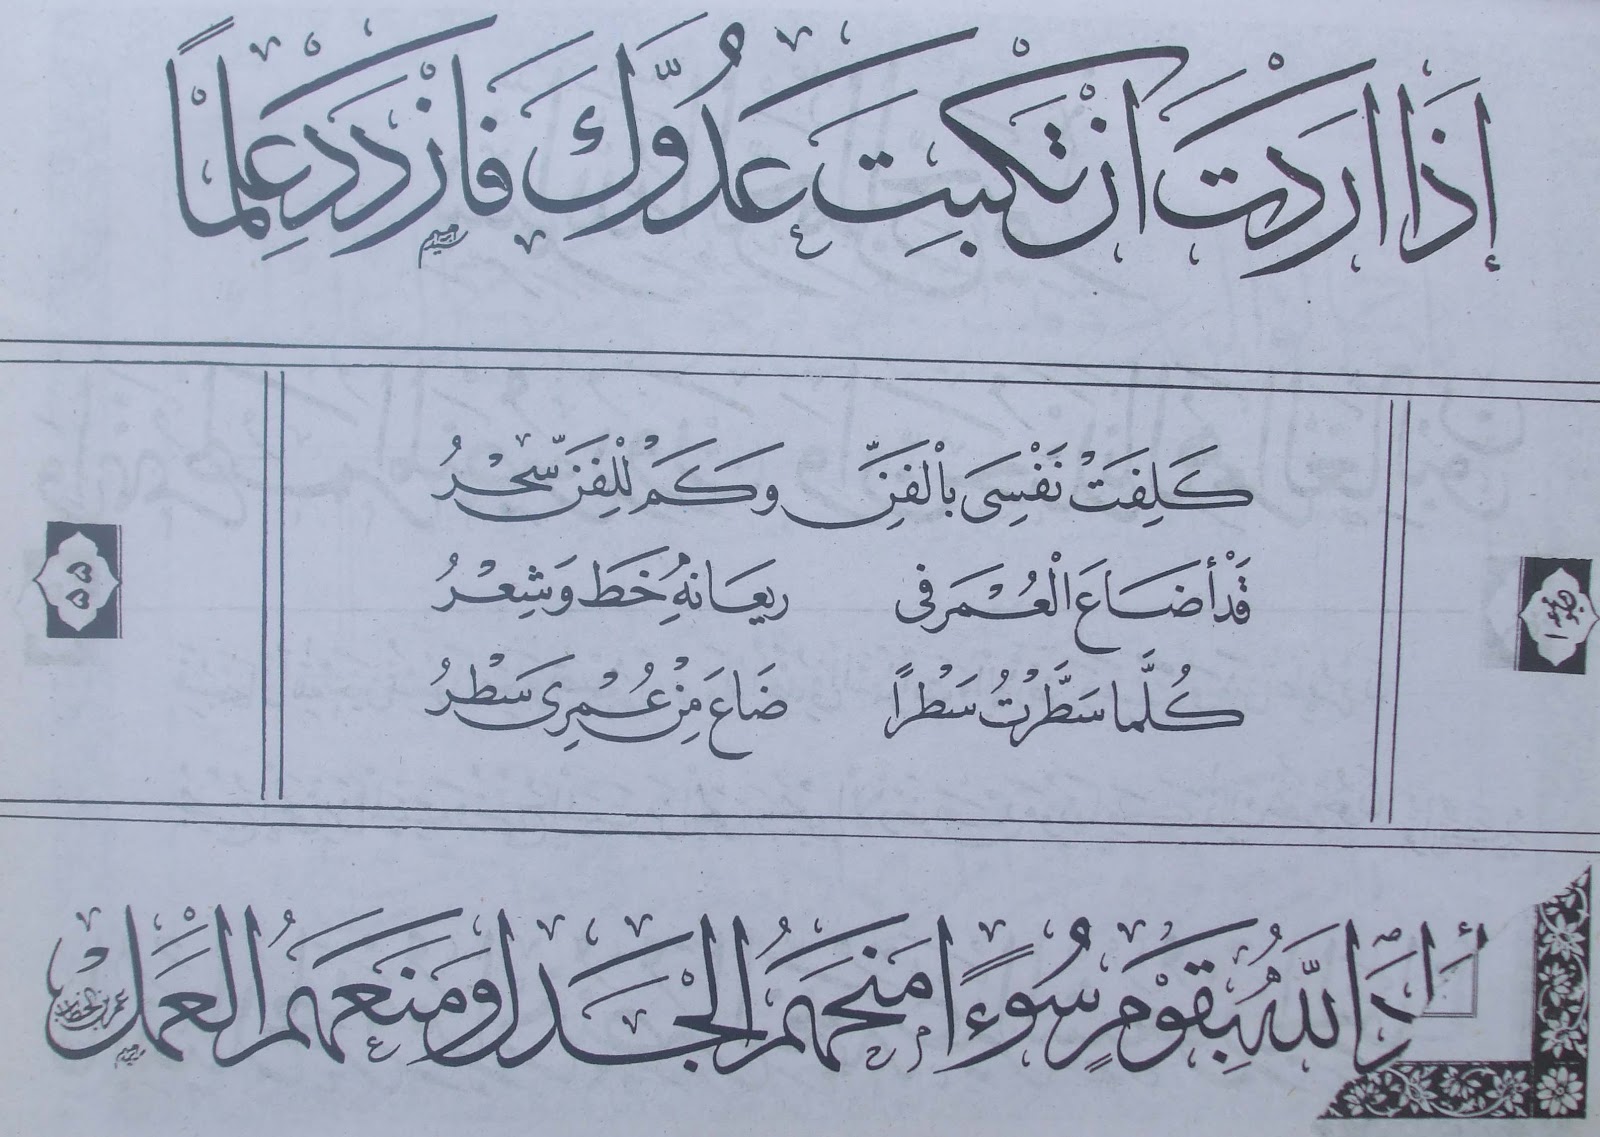 إِذَا اَرَدْتَ اَنْ تَكْبِتَ عَدُوَّكَ فَازْدَدْ عِلْمًا
كَلِفَتْ نَفْسِى بِالْفَنِّ وَكَمْ لِلْفَنِّ سِحْرُ
قَدْ أَضَاعَ الْعُمْرَ فِى رَيْعَانِهِ خَطٌ وَشِعْرُ
كُلَّمَا سَطَّرْتُ سَطْرًا ضَاعَ مِنْ عُمْرِى سَطْرُ
٥٥
أَرَادَ اللّٰهُ بِقَوْمٍ سُوءًا مَنَحَهُمُ الْجَدَلَ وَمَنَعَهُمُ الْعَمَلَ
عمر بن الخطاب